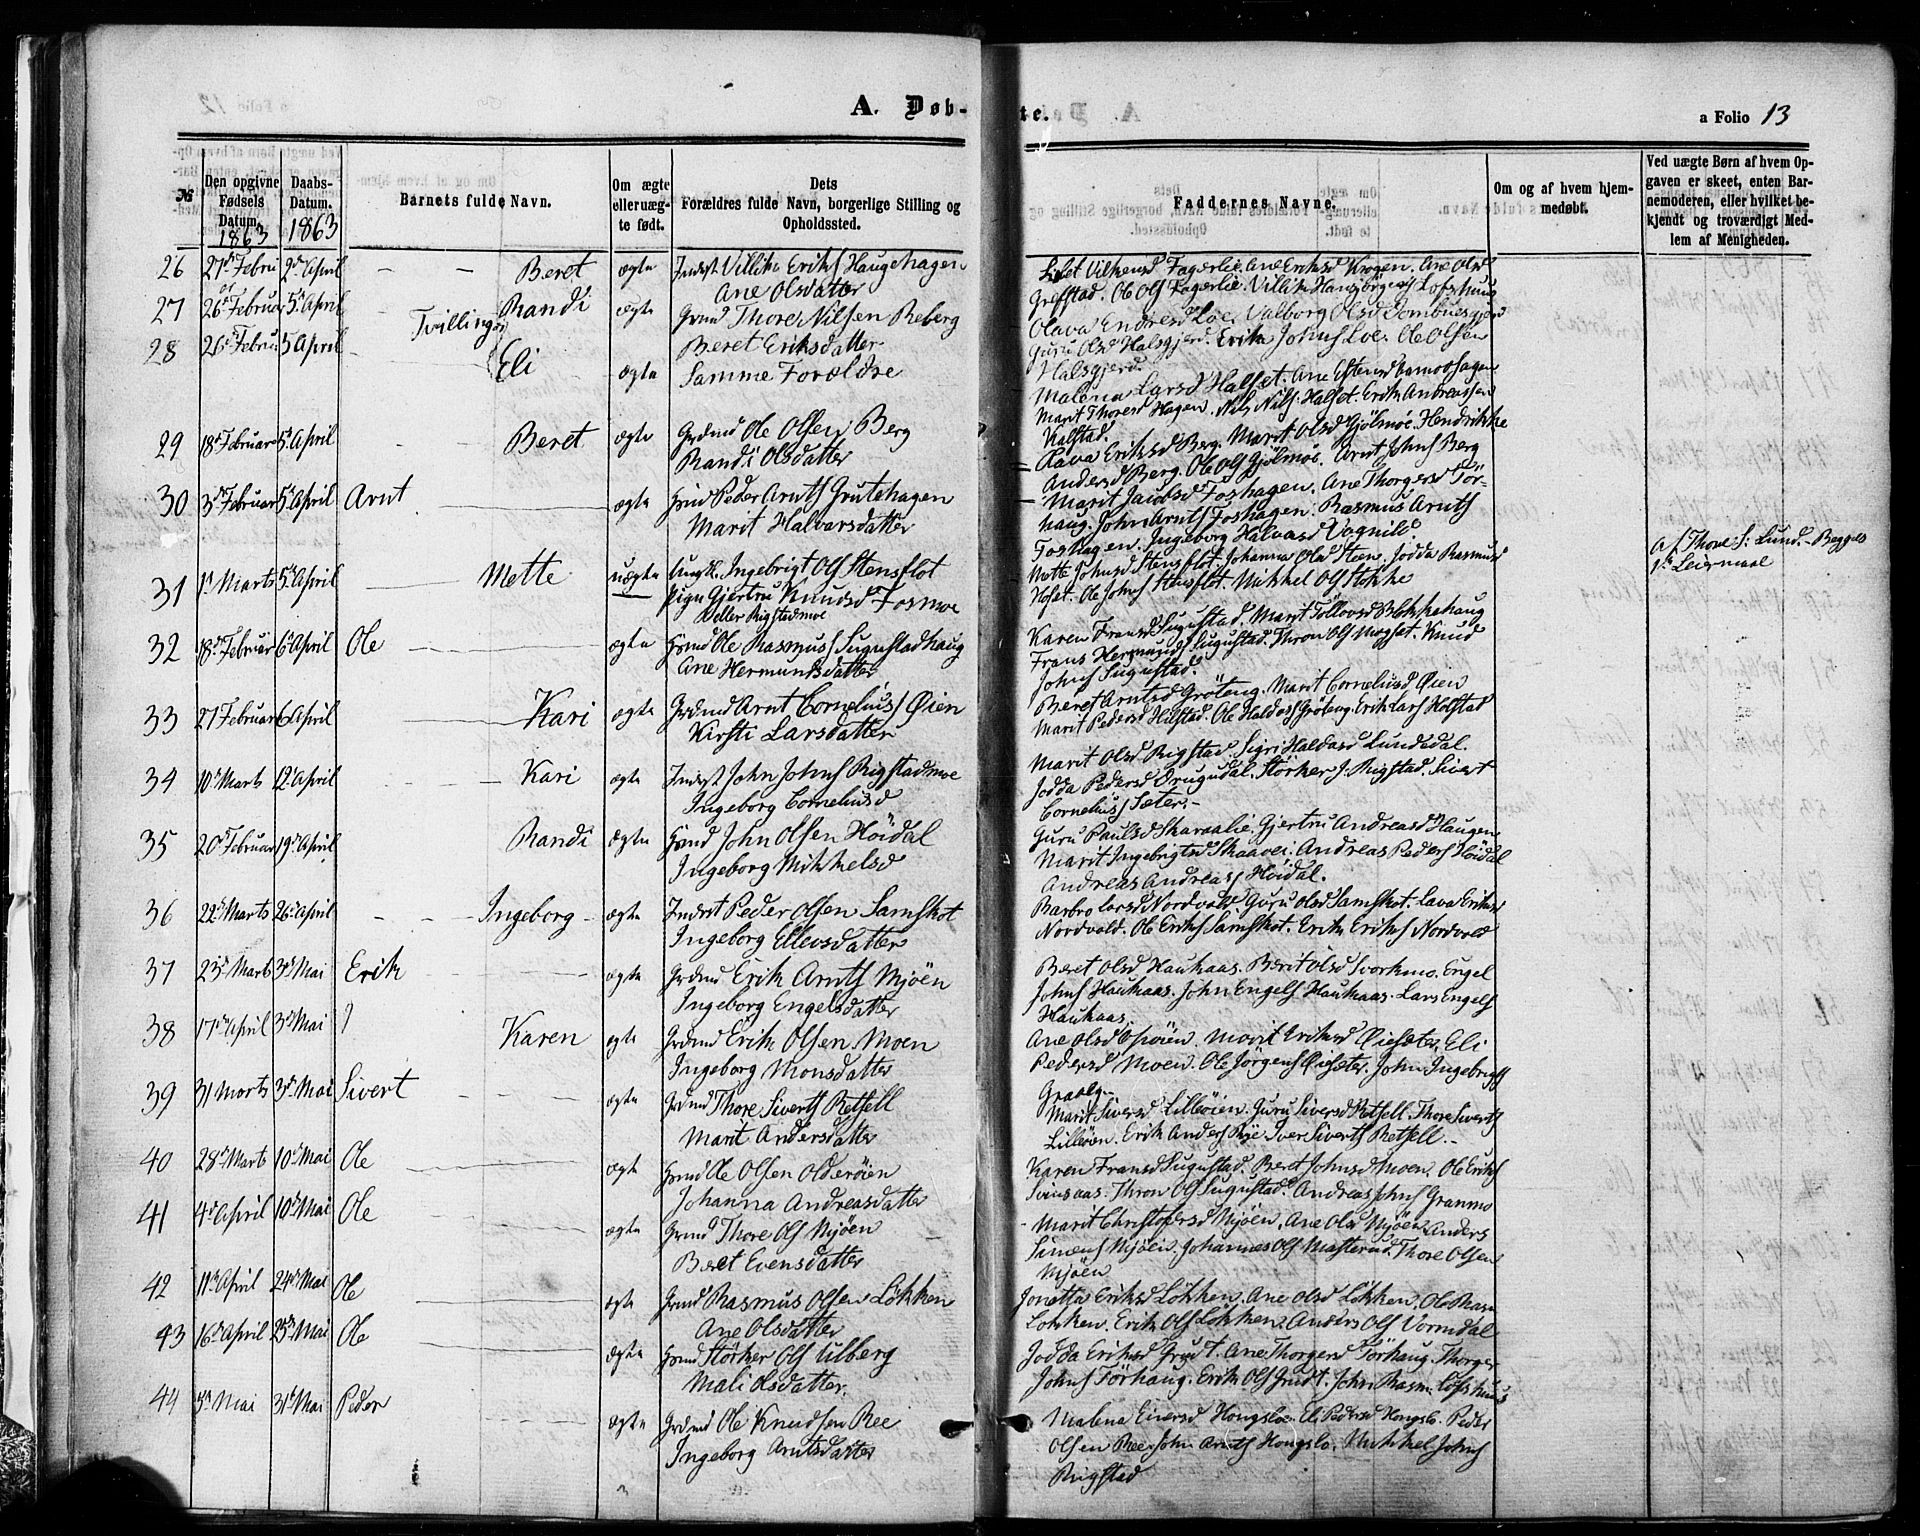 A. Døb-
te.
a Folio 13
№
Den opgivne Fødsels Datum. 1863
Daabs-Datum. 1863
Barnets fulde Navn.
Om ægte eller uægte født.
Dets Forældres fulde Navn, borgerlige Stilling og Opholdssted.
Faddernes Navne.
Om og af hvem hjem-medøbt.
Ved uægte Børn af hvem Op-gaven er skeet, enten Bar-nemoderen, eller hvilket be-kjendt og troværdigt Med-lem af Menigheden.
26 27de Febru 2de April Beret ægte Inderst Erik Haugehagen
Ane Olsdatter
Fagerlie. Ane Eriksd Krogen. Ane Olsd
Grefstad. Ole Ols Fagerlie.
27 26de Februar 5te April Tvillinger Randi ægte Grmd Thore Nilsen Reberg
Beret Eriksdatter
Olava Endresd Loe. Valborg Olsd
Guru Olsd Halsgjerd. Erik Johns Loe. Ole Olsen
Halsgjerd.
28 26de Febru 5 April Eli ægte Samme Forældre
Malena Larsd Halset. Ane
Marit Thoresd Hagen. Nils Nils. Halset. Erik Andreassen
Kalstad.
29 18de Februar 5te April Beret ægte Grdmd Ole Olsen Berg
Randi Olsdatter
Lava Eriksd Berg. Marit Olsd Gjølmoe. Hendrikke
Andersd Berg. Ole Ols Gjølmoe. Arnt Johns Berg
30 3de Februar 5te April Arnt ægte Hmd Peder Arnts Grutehagen
Marit Halvarsdatter
Marit Jacobsd Foshagen. Ane Thorgersd Tør-
haug. John Arnts Foshagen. Rasmus Arnts
Foshagen. Ingeborg Halvarsd Vognild.
31 1ste Marts 5te April Mette uægte Ungk. Ingebrigt Ols Stensflot
Pige Gjertru Knudsd Fosmoe
eller Rigstadmoe
Mette Johnsd Stensflot. Johanna Olsd Steen. Jodda Rasmusd
Hoset. Ole Johns Stensflot. Mikkel Ols Stokke
af Thore S. Lund. - Begges
1ste Leiermaal
32 18de Februar 6te April Ole ægte Hmd Ole Rasmus Sugustadhaug
Ane Hermundsdatter
Karen Fransd Sugustad. Marit Tollovsd Blokkehaug
Frans Hermunds Sugustad. Thron Ols Mogset. Knud
Johns Sugustad.
33 27 Februar 6 April Kari ægte Grdmd Arnt Cornelius Øien
Kirsti Larsdatter
Beret Arntsd Grøteng. Marit Corneliusd Øien
Marit Pedersd Hilstad. Ole Haldos Grøteng. Erik Lars Holstad
34 10de Marts 12te April Kari ægte Inderst John Johns Rigstadmoe
Ingeborg Corneliusd
Marit Olsd Rigstad. Sigri Haldosd Lundedal.
Jodda Pedersd Drugudal. Størker J. Rigstad. Sivert
Cornelius Sæter.
35 20de Februar 19de April Randi ægte Hmd John Olsen Høidal
Ingeborg Mikkelsd
Guru Paulsd Skaraalie. Gjertru Andreasd Haugen
Marit Ingebrigtsd Skaavei. Andreas Peders Høidal
Andreas Andreas Høidal.
36 22de Marts 26de April Ingeborg ægte Inderst Peder Olsen Samskot
Ingeborg Ellevsdatter
Barbro Larsd Nordvold. Guru Olsd Samskot. Lava Eriksd
Nordvold. Ole Eriks Samskot. Erik Eriks Nordvold
37 23de Marts 3de Mai Erik ægte Grdmd Erik Arnts Mjøen
Ingeborg Engelsdatter
Beret Olsd Haukaas. Berit Olsd Svorkmo. Engel
Johns Haukaas. John Engels Haukaas. Lars Engels
Haukaas.
38 17de April 3de Mai ? Karen ægte Grdmd Erik Olsen Moen
Ingeborg Monsdatter
Ane Olsd Osøien. Marit Eriksd Øiesæter. Eli
Pedersd Moen. Ole Jørgens Øiesæter. John Ingebrigts
39 31 Marts 3de Mai Sivert ægte Grdmd Thore Siverts Retsell
Marit Andersdatter
Marit Siversd Lilleøien. Guru Siversd Retsell. Thore Siverts
Lilleøien. Erik Anders Rye Iver Siverts Retsell.
40 28de Marts 10de Mai Ole ægte Hmd Ole Olsen Olderøien
Johanna Andreasdatter
Karen Fransd Sugustad. Beret Johnsd Moen. Ole Eriks
Svinsaas. Thron Ols Sugustad. Andreas Johns Granmo
41 4de April 10de Mai Ole ægte Grmd Thore Ols Mjøen
Beret Evensdatter
Marit Christofersd Mjøen. Ane Olsd Mjøen. Anders
Simens Mjøen. Johannes Ols Mosterud. Thore Olsen
Mjøen
42 11te April 24de Mai Ole ægte Grmd Rasmus Olsen Løkken
Ane Olsdatter
Jonetta Eriksd Løkken. Ane Olsd Løkken. Ole Rasm
Løkken. Erik Ols Løkken. Anders Ols Vormdal
43 16de April 25de Mai Ole ægte Hmd Størker Ols Ulberg
Mali Olsdatter.
Jodda Eriksd Grudt. Ane Thorgersd Tørhaug. Thorger
Johns Tørhaug. Erik Ols Grudt. John Rasm. Lofshuus
44 5te Mai 31te Mai Peder ægte Grdmd Ole Knudsen Ree
Ingeborg Arntsdatter
Malena Eiversd Hongsloe. Eli Pedersd Hongslo. Peder
Olsen Ree. John Arnts Hongslo. Mikkel Johns
Rigstad